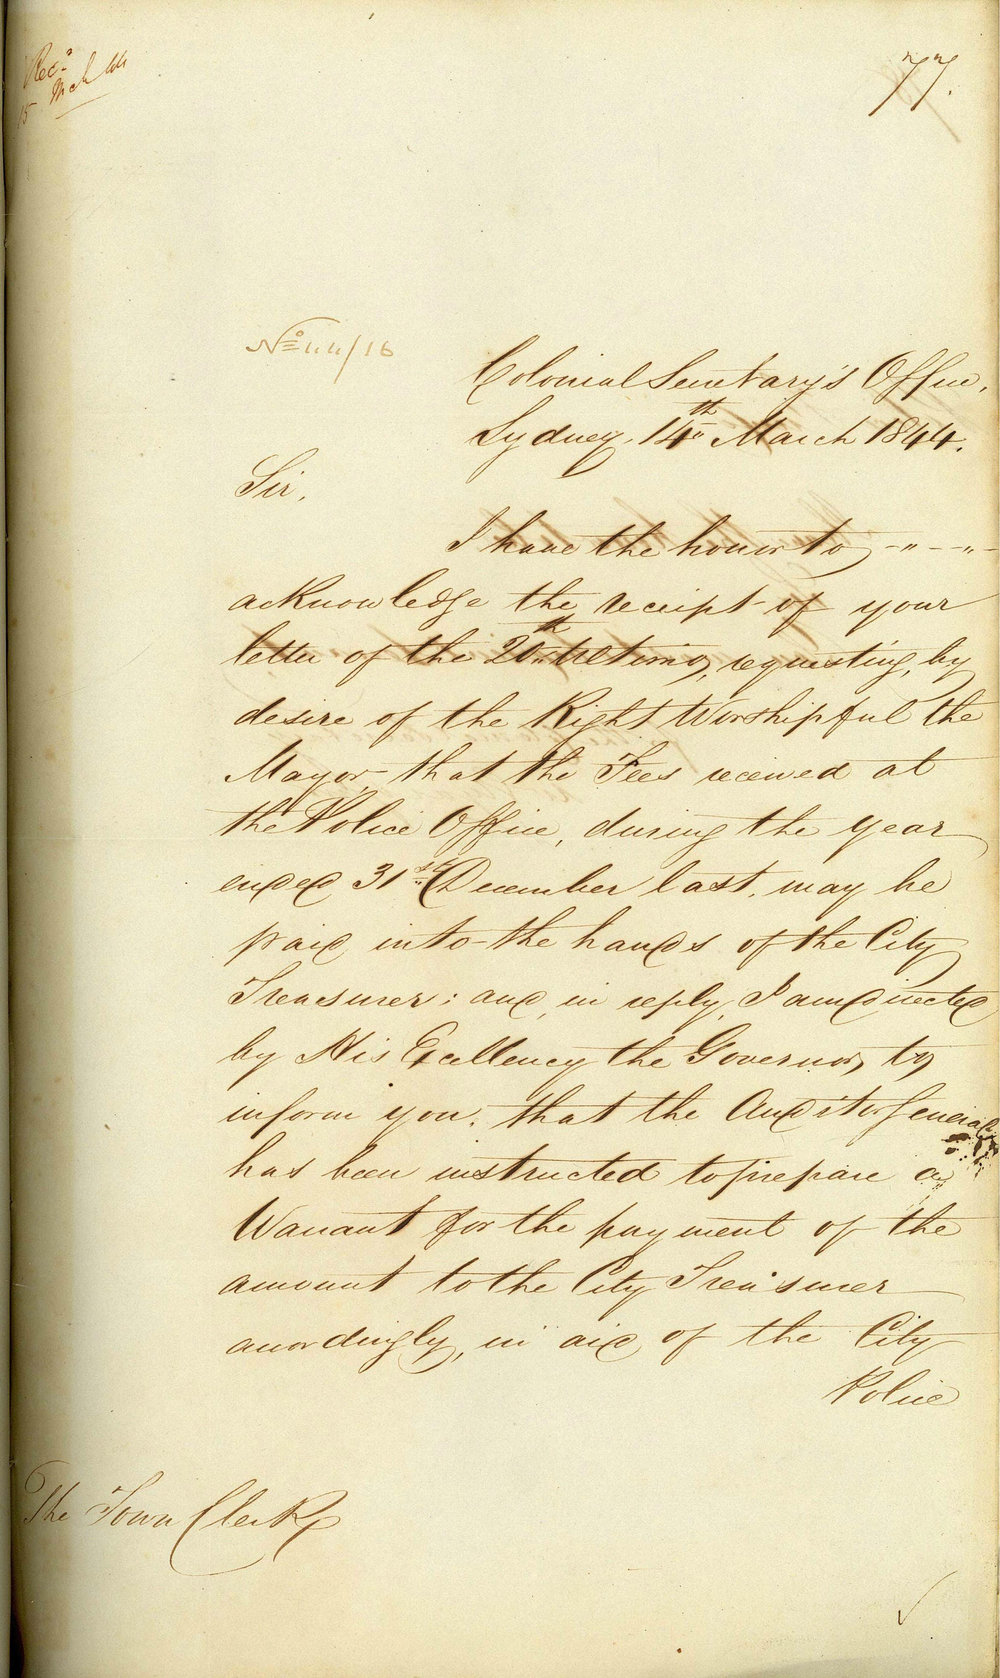 Rec.d
15 Mch 44
77.
No 44/16
Colonial Secretary's Office,
Sydney, 14th March 1844.
Sir,
I have the honor to
acknowledge the receipt of your
letter of the 20th Ultimo, requesting, by
desire of the Right Worshipful the
Mayor, that the Fees received at
the Police Office, during the year
ended 31st December last, may be
paid into the hands of the City
Treasurer; and, in reply, I am directed
by His Excellency the Governor, to
inform you, that the Auditor General
has been instructed to prepare a
Warrant for the payment of the
amount to the City Treasurer
accordingly, in aid of the City
Police
The Town Clerk